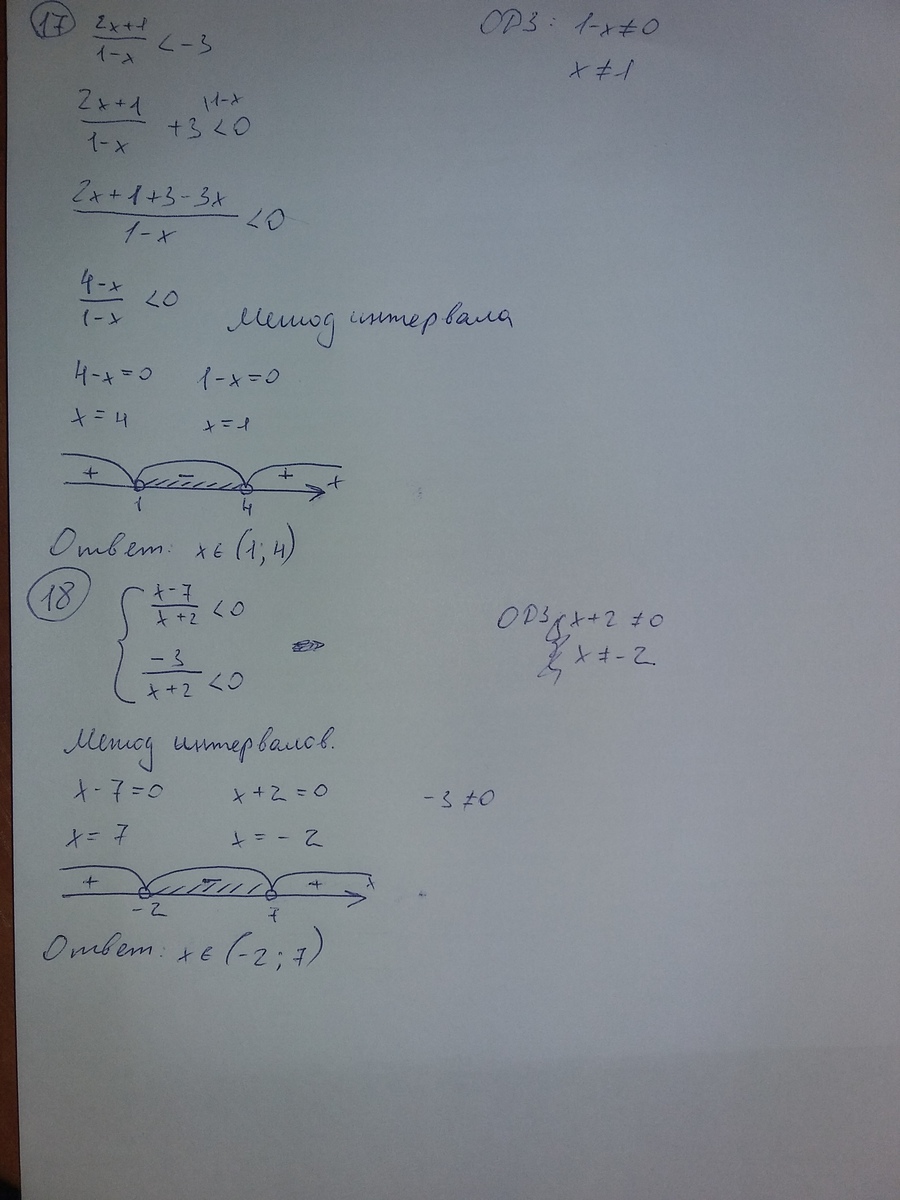 17 (2x+1)/(1-x) < -3 ОРЗ: 1-x≠0
x≠1
(2x+1)/(1-x) + 3 \1-x < 0
(2x+1+3-3x)/(1-x) < 0
(4-x)/(1-x) < 0 Метод интервала
4-x=0 1-x=0
x=4 x=1
+ - + x
1 4
Ответ: x∈(1;4)
18 { (x-7)/(x+2) < 0 ОРЗ { x+2≠0
(-3)/(x+2) < 0 x≠-2
Метод интервалов.
x-7=0 x+2=0 -3≠0
x=7 x=-2
+ - + x
-2 7
Ответ: x∈(-2;7)